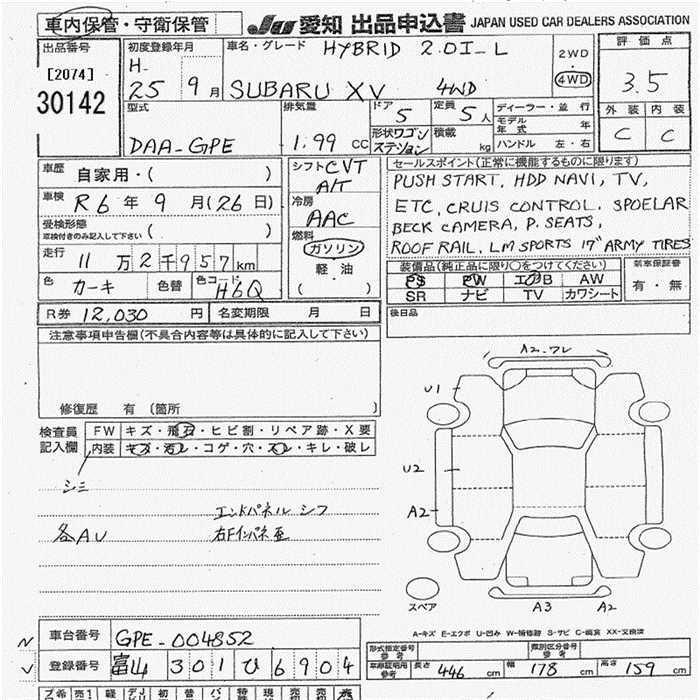 車内保管・守衛保管 JU 愛知 出品申込書 JAPAN USED CAR DEALERS ASSOCIATION
出品番号 初度登録年月 車名・グレード HYBRID 2.0I-L 2WD 評価点
[2074] H- 4WD 3.5
30142 25 9月 SUBARU XV 4WD
型式 排気量 ドア 5 定員 5人 ディーラー・並行 外装 内装
モデル年式 年 C C
DAA-GPE 1.99 CC 形状 ワゴン ステーション 積載 kg ハンドル 左・右
車歴 自家用・( ) シフト CVT A/T セールスポイント(正常に機能するものに限ります)
PUSH START, HDD NAVI, TV,
車検 R6年 9月(26日) 冷房 AAC ETC, CRUIS CONTROL. SPOELAR
受検形態 車検付きのみ記入して下さい ( ) BECK CAMERA, P. SEATS,
燃料 ガソリン ROOF RAIL, LM SPORTS 17" ARMY TIRES
走行 11万2千957km 軽・油 装備品(純正品に限り○をつけてください) 新車保証書
色 カーキ 色替 色コード H6Q ( ) PS PW エアB AW 有・無
SR ナビ TV カワシート
R券 12,030円 名変期限 月 日 後日品
注意事項申告欄(不具合内容等は具体的に記入して下さい)
A2.ワレ
U1
修復歴 有 (箇所 )
検査員記入欄 FW キズ・飛石・ヒビ割・リペア跡・X要
内装 キズ・汚レ・コゲ・穴・スレ・キレ・破レ
U2
シミ
エンドパネル シフ A2
各AU 右Fインパネ歪
スペア A3 A2
A-キズ E-エクボ U-凹み W-補修跡 S-サビ C-腐食 XX-交換済
N 車台番号 GPE-004852 形式指定番号 参考 類別区分番号 参考
V 登録番号 富山 301 ひ 6904 車庫証明用 参考 長さ 446cm 幅 178cm 高さ 159cm